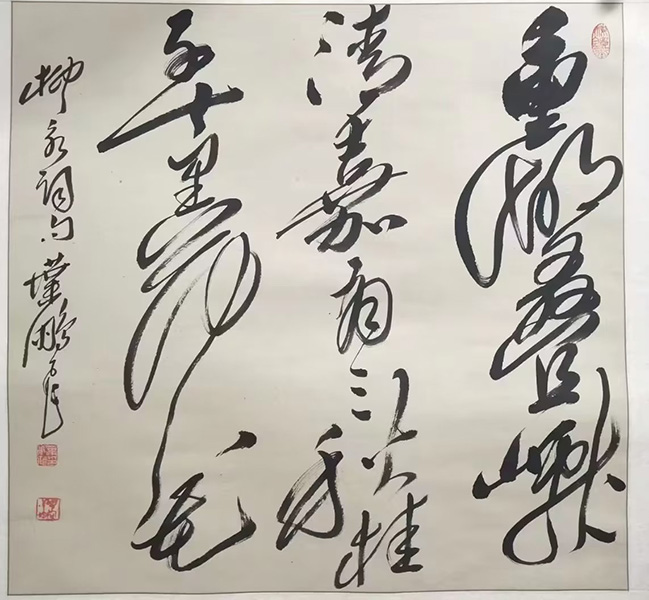 重湖叠巘
清嘉有三秋桂
子十里荷花
柳永词句 鹏书